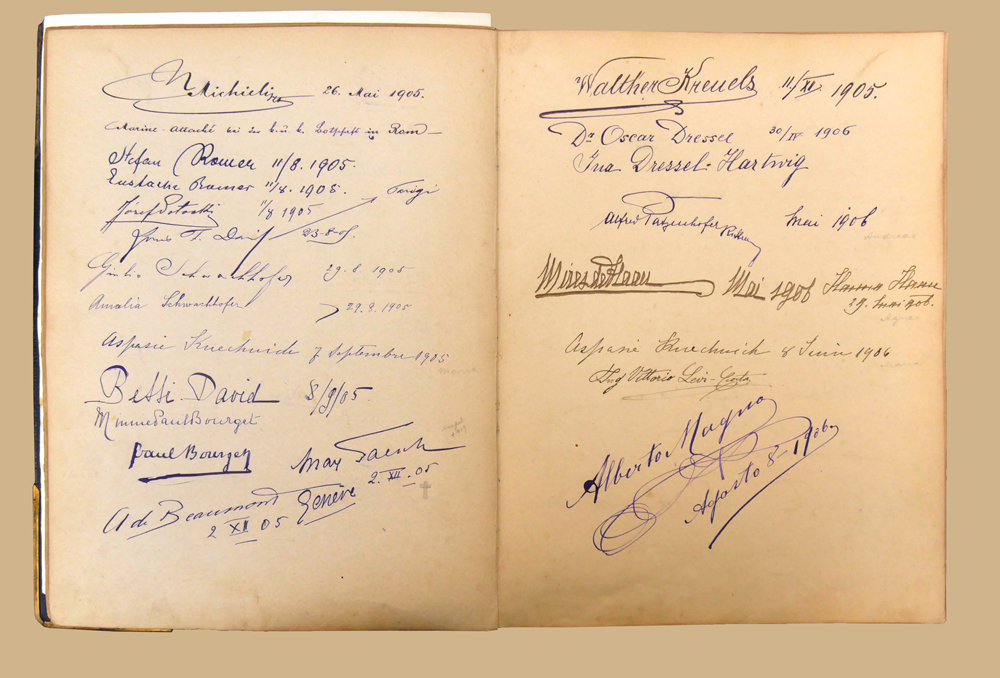 Michieli 26. Mai 1905.
Marine-Attaché bei der k. u. k. Botschaft in Rom
Stefan Romer 11/8. 1905.
Eustache Romer 11/8. 1905.
Józef Potocki 11/8 1905
23-8-05.
Giulio Schwachhofer 29. 8. 1905
Amalia Schwachhofer 29. 8. 1905
Aspasie 7 Septembre 1905
Betti David 8/9/05.
Minnie Paul Bourget
Paul Bourget
Max
2. XII. 05
A de Beaumont Genève
2 XII 05
Walther Kreuels 11/XI. 1905.
Dr Oscar Dressel 30/IV 1906
Ina Dressel-Hartwig
Alfred Patzenhofer Mai 1906
Mires de Haan Mai 1906
29. Mai 906.
Aspasie 8 Juin 1906
Ing Vittorio Levi-Costa
Alberto Magno
Agosto 8-1906